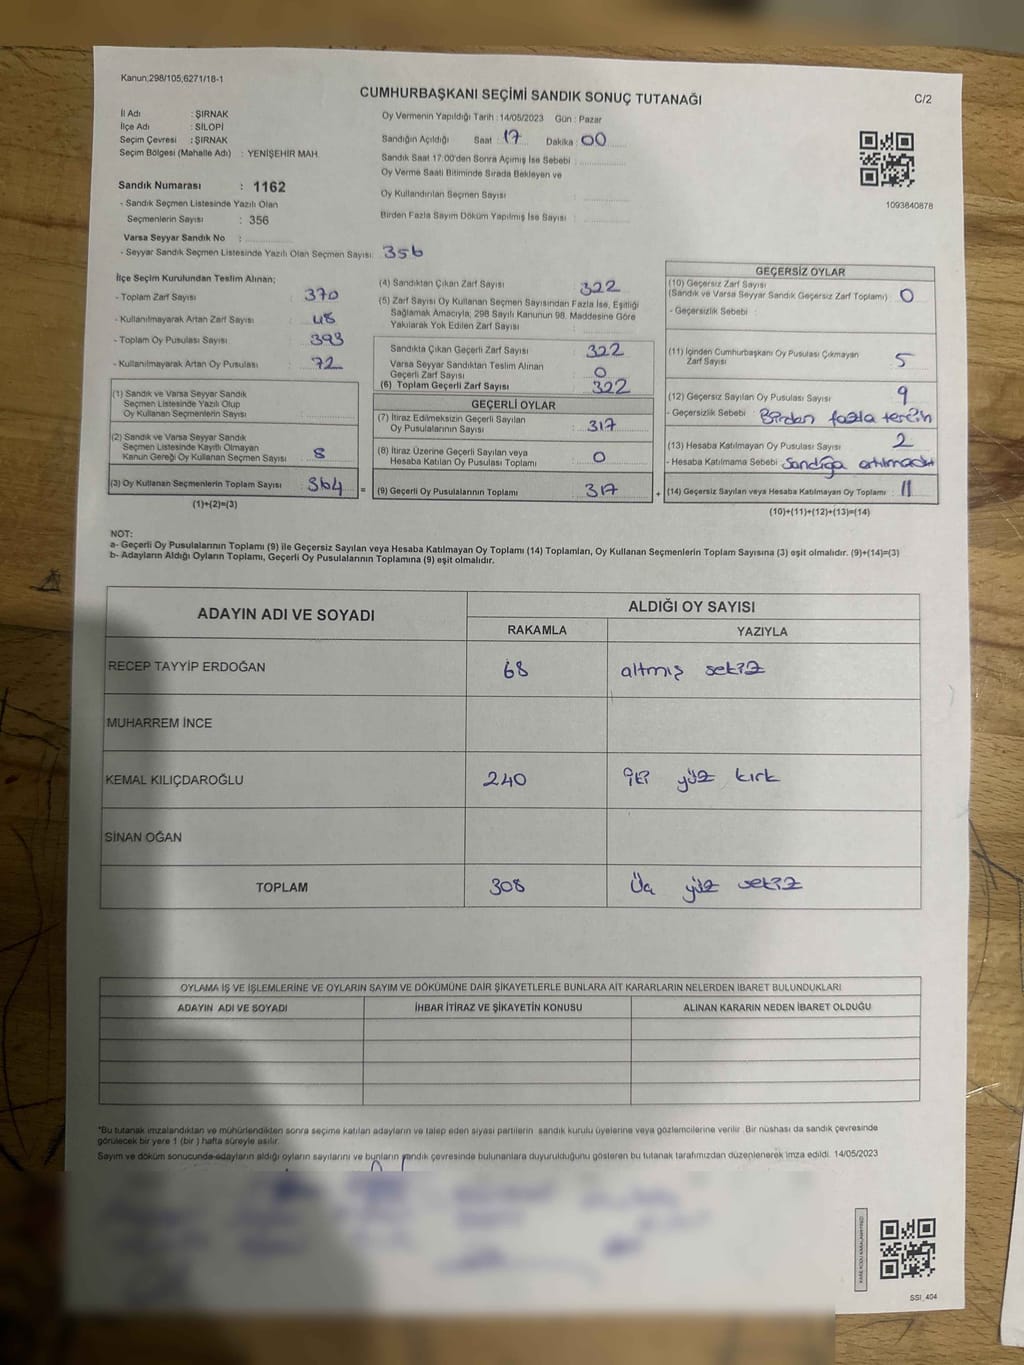 Kanun;298/105,6271/18-1
CUMHURBAŞKANI SEÇİMİ SANDIK SONUÇ TUTANAĞI
C/2
İl Adı : ŞIRNAK
İlçe Adı : SİLOPİ
Seçim Çevresi : ŞIRNAK
Seçim Bölgesi (Mahalle Adı) : YENİŞEHİR MAH.
Sandık Numarası : 1162
- Sandık Seçmen Listesinde Yazılı Olan
Seçmenlerin Sayısı : 356
Varsa Seyyar Sandık No :
- Seyyar Sandık Seçmen Listesinde Yazılı Olan Seçmen Sayısı: 356
Oy Vermenin Yapıldığı Tarih : 14/05/2023 Gün : Pazar
Sandığın Açıldığı Saat : 17 Dakika : 00
Sandık Saat 17:00'den Sonra Açımış İse Sebebi :
Oy Verme Saati Bitiminde Sırada Bekleyen ve
Oy Kullandırılan Seçmen Sayısı :
Birden Fazla Sayım Döküm Yapılmış İse Sayısı :
1093840878
İlçe Seçim Kurulundan Teslim Alınan;
- Toplam Zarf Sayısı : 370
- Kullanılmayarak Artan Zarf Sayısı : 48
- Toplam Oy Pusulası Sayısı : 393
- Kullanılmayarak Artan Oy Pusulası : 72
(1) Sandık ve Varsa Seyyar Sandık
Seçmen Listesinde Yazılı Olup
Oy Kullanan Seçmenlerin Sayısı :
(2) Sandık ve Varsa Seyyar Sandık
Seçmen Listesinde Kayıtlı Olmayan
Kanun Gereği Oy Kullanan Seçmen Sayısı : 8
(3) Oy Kullanan Seçmenlerin Toplam Sayısı : 364 =
(1)+(2)=(3)
(4) Sandıktan Çıkan Zarf Sayısı : 322
(5) Zarf Sayısı Oy Kullanan Seçmen Sayısından Fazla İse, Eşitliği
Sağlamak Amacıyla; 298 Sayılı Kanunun 98. Maddesine Göre
Yakılarak Yok Edilen Zarf Sayısı :
Sandıkta Çıkan Geçerli Zarf Sayısı : 322
Varsa Seyyar Sandıktan Teslim Alınan
Geçerli Zarf Sayısı : 0
(6) Toplam Geçerli Zarf Sayısı : 322
GEÇERLİ OYLAR
(7) İtiraz Edilmeksizin Geçerli Sayılan
Oy Pusulalarının Sayısı : 317
(8) İtiraz Üzerine Geçerli Sayılan veya
Hesaba Katılan Oy Pusulası Toplamı : 0
(9) Geçerli Oy Pusulalarının Toplamı : 317 +
GEÇERSİZ OYLAR
(10) Geçersiz Zarf Sayısı
(Sandık ve Varsa Seyyar Sandık Geçersiz Zarf Toplamı) : 0
- Geçersizlik Sebebi :
(11) İçinden Cumhurbaşkanı Oy Pusulası Çıkmayan
Zarf Sayısı : 5
(12) Geçersiz Sayılan Oy Pusulası Sayısı : 9
- Geçersizlik Sebebi : Birden fazla tercih
(13) Hesaba Katılmayan Oy Pusulası Sayısı : 2
- Hesaba Katılmama Sebebi : Sandığa atılmadı
(14) Geçersiz Sayılan veya Hesaba Katılmayan Oy Toplamı : 11
(10)+(11)+(12)+(13)=(14)
NOT:
a- Geçerli Oy Pusulalarının Toplamı (9) ile Geçersiz Sayılan veya Hesaba Katılmayan Oy Toplamı (14) Toplamları, Oy Kullanan Seçmenlerin Toplam Sayısına (3) eşit olmalıdır. (9)+(14)=(3)
b- Adayların Aldığı Oyların Toplamı, Geçerli Oy Pusulalarının Toplamına (9) eşit olmalıdır.
ADAYIN ADI VE SOYADI
ALDIĞI OY SAYISI
RAKAMLA YAZIYLA
RECEP TAYYİP ERDOĞAN 68 altmış sekiz
MUHARREM İNCE
KEMAL KILIÇDAROĞLU 240 iki yüz kırk
SİNAN OĞAN
TOPLAM 308 Üç yüz sekiz
OYLAMA İŞ VE İŞLEMLERİNE VE OYLARIN SAYIM VE DÖKÜMÜNE DAİR ŞİKAYETLERLE BUNLARA AİT KARARLARIN NELERDEN İBARET BULUNDUKLARI
ADAYIN ADI VE SOYADI İHBAR İTİRAZ VE ŞİKAYETİN KONUSU ALINAN KARARIN NEDEN İBARET OLDUĞU
*Bu tutanak imzalandıktan ve mühürlendikten sonra seçime katılan adayların ve talep eden siyasi partilerin sandık kurulu üyelerine veya gözlemcilerine verilir. Bir nüshası da sandık çevresinde
görülecek bir yere 1 (bir) hafta süreyle asılır.
Sayım ve döküm sonucunda adayların aldığı oyların sayılarını ve bunların sandık çevresinde bulunanlara duyurulduğunu gösteren bu tutanak tarafımızdan düzenlenerek imza edildi. 14/05/2023
SSI_404